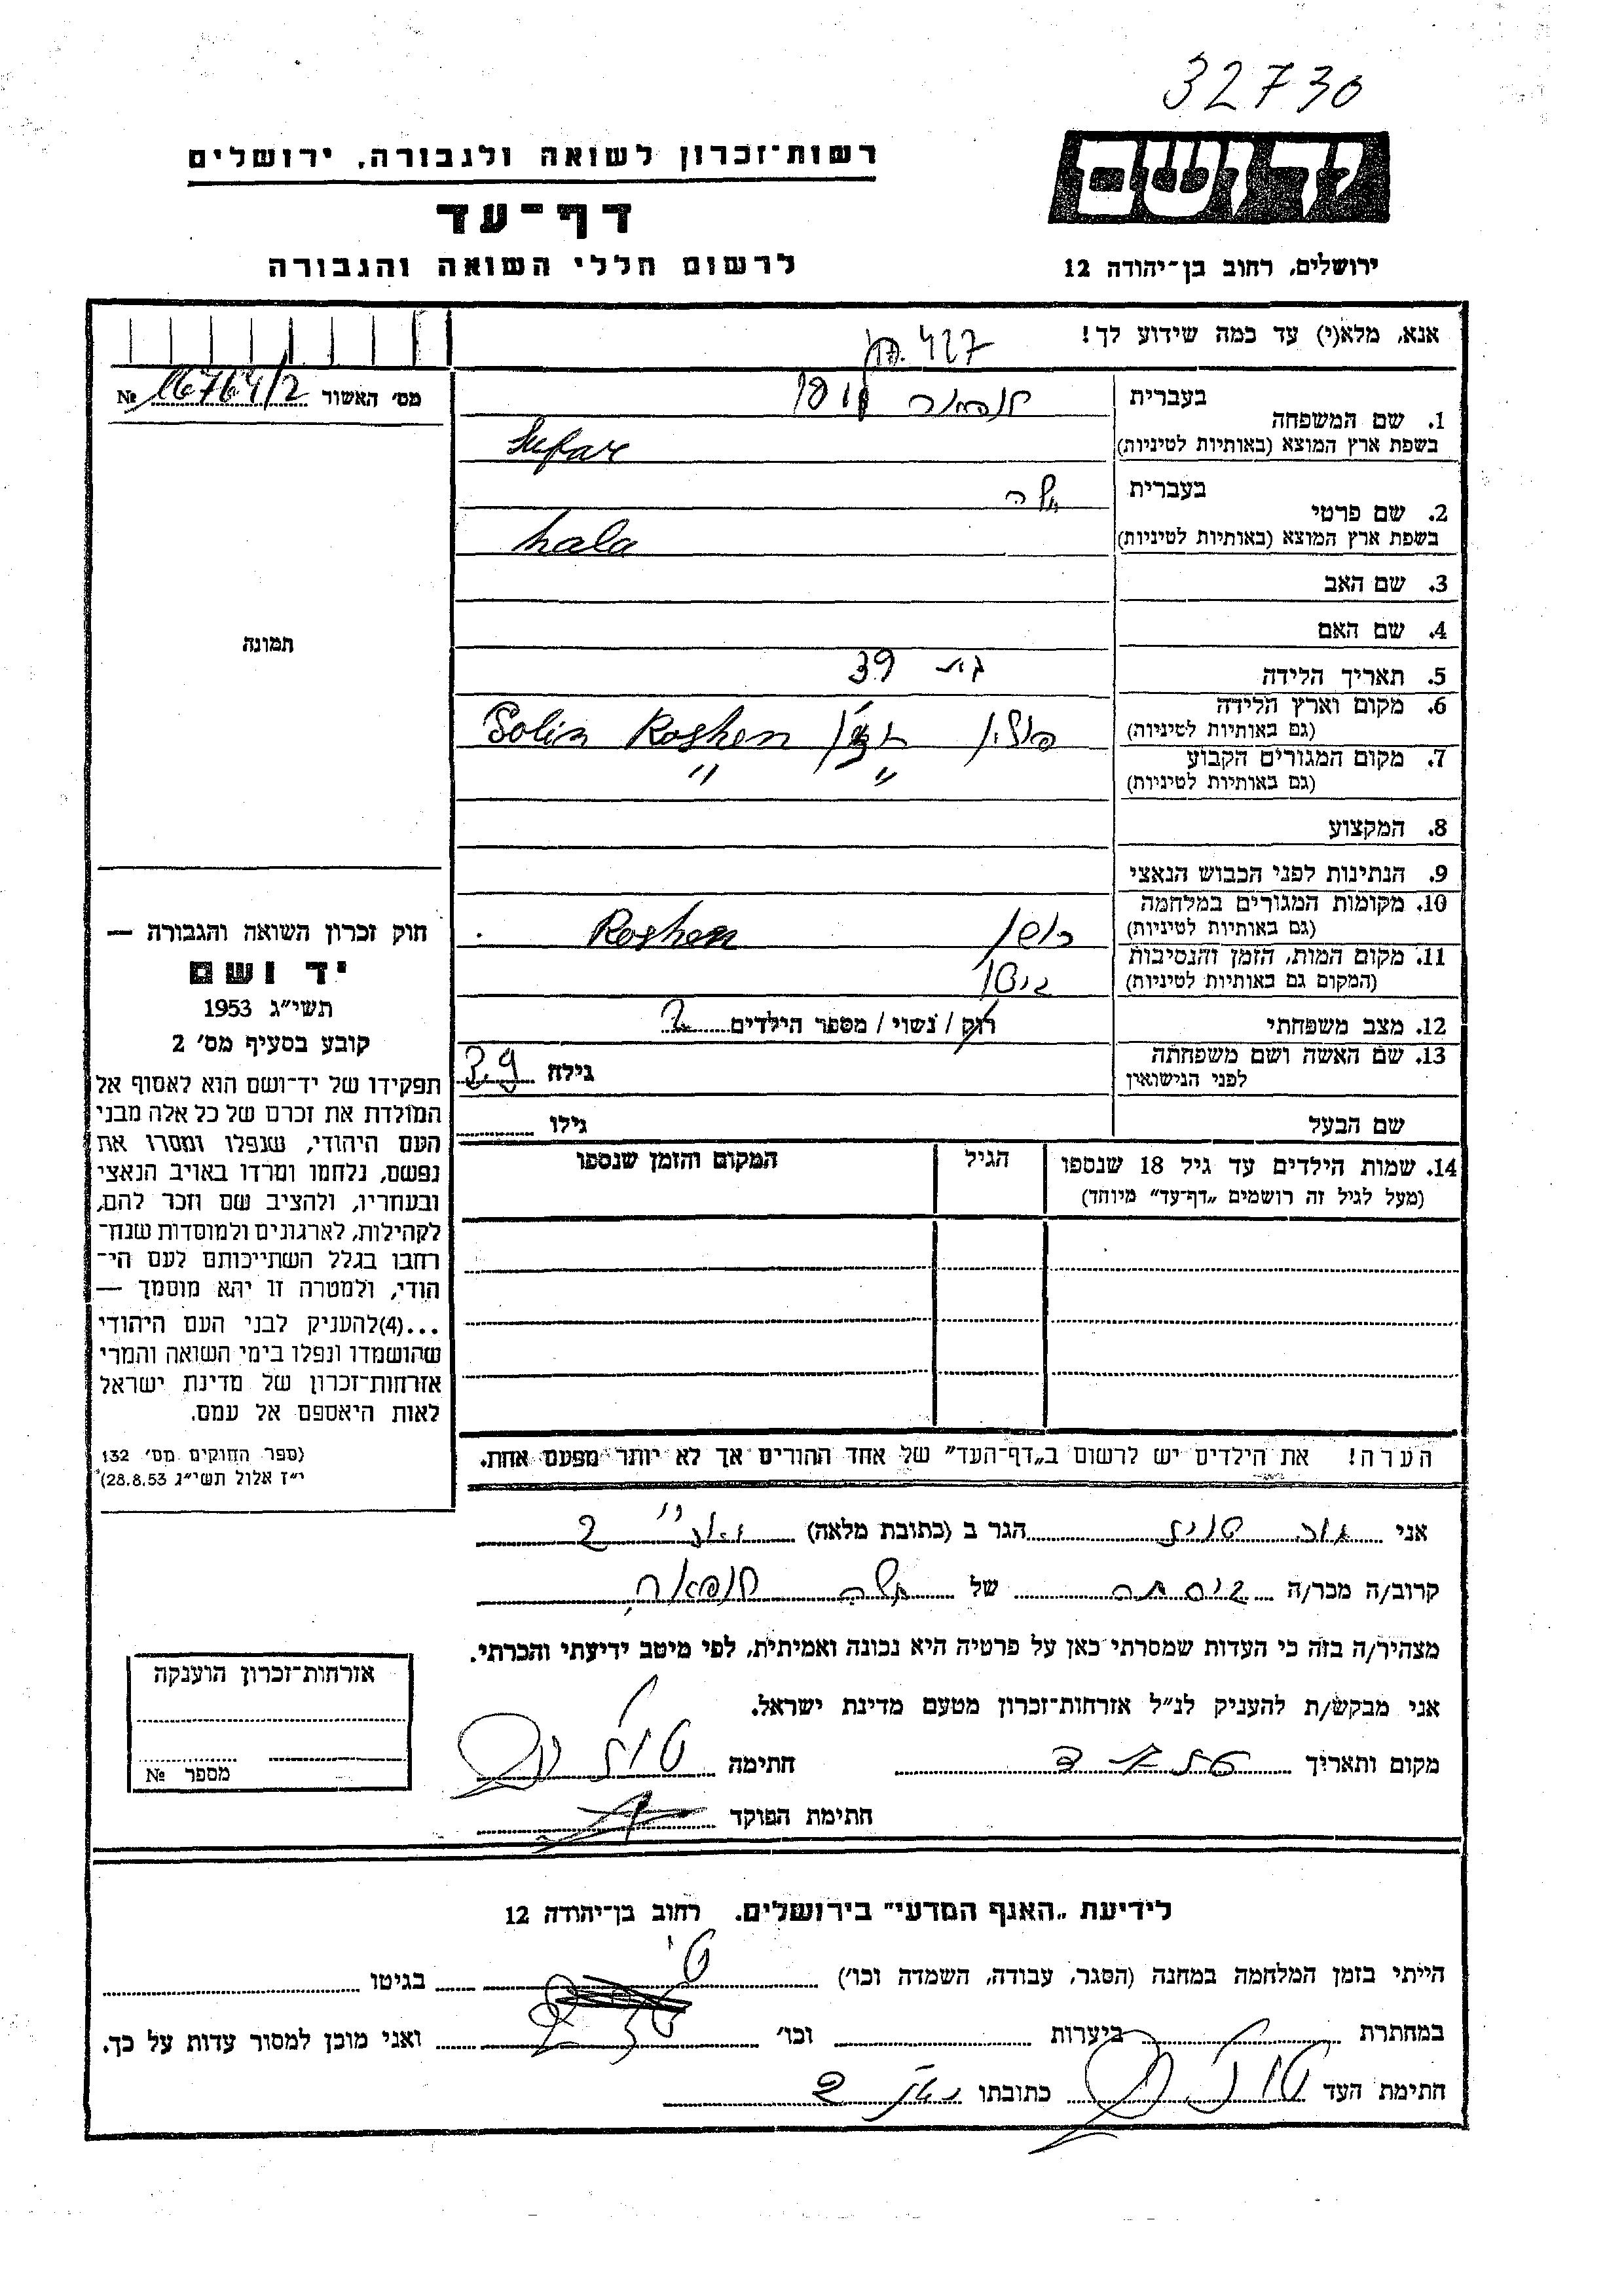 32730
רשות־זכרון לשואה ולגבורה, ירושלים
יד ושם
דף־עד
לרשום חללי השואה והגבורה
ירושלים, רחוב בן־יהודה 12
אנא, מלא(י) עד כמה שידוע לך!
427
מס׳ האשור № 16764/2
1. שם המשפחה
בעברית
בשפת ארץ המוצא (באותיות לטיניות)
2. שם פרטי
בעברית
בשפת ארץ המוצא (באותיות לטיניות) hala
3. שם האב
4. שם האם
תמונה
5. תאריך הלידה 39
6. מקום וארץ הלידה
(גם באותיות לטיניות) פולין Polin Roshen
7. מקום המגורים הקבוע " "
(גם באותיות לטיניות)
8. המקצוע
9. הנתינות לפני הכבוש הנאצי
10. מקומות המגורים במלחמה
(גם באותיות לטיניות) Roshen
11. מקום המות, הזמן והנסיבות
(המקום גם באותיות לטיניות)
12. מצב משפחתי רוק / נשוי / מספר הילדים 2
13. שם האשה ושם משפחתה
לפני הנישואין גילה 39
שם הבעל גילו
14. שמות הילדים עד גיל 18 שנספו
(מעל לגיל זה רושמים „דף־עד" מיוחד)
הגיל
המקום והזמן שנספו
חוק זכרון השואה והגבורה —
יד ושם
תשי״ג 1953
קובע בסעיף מס׳ 2
תפקידו של יד־ושם הוא לאסוף אל
המולדת את זכרם של כל אלה מבני
העם היהודי, שנפלו ומסרו את
נפשם, נלחמו ומרדו באויב הנאצי
ובעוזריו, ולהציב שם וזכר להם,
לקהילות, לארגונים ולמוסדות שנח־
רבו בגלל השתייכותם לעם הי־
הודי, ולמטרה זו יהא מוסמך —
...(4)להעניק לבני העם היהודי
שהושמדו ונפלו בימי השואה והמרי
אזרחות־זכרון של מדינת ישראל
לאות היאספם אל עמם.
(ספר החוקים מס׳ 132
י״ז אלול תשי״ג 28.8.53)
הערה! את הילדים יש לרשום ב„דף־העד" של אחד ההורים אך לא יותר מפעם אחת.
אני הגר ב (כתובת מלאה) 2
קרוב/ה מכר/ה של
מצהיר/ה בזה כי העדות שמסרתי כאן על פרטיה היא נכונה ואמיתית, לפי מיטב ידיעתי והכרתי.
אני מבקש/ת להעניק לנ״ל אזרחות־זכרון מטעם מדינת ישראל.
מקום ותאריך חתימה
חתימת הפוקד
אזרחות־זכרון הוענקה
מספר №
לידיעת „האגף המדעי" בירושלים. רחוב בן־יהודה 12
הייתי בזמן המלחמה במחנה (הסגר, עבודה, השמדה וכו׳) בגיטו
במחתרת ביערות וכו׳ ואני מוכן למסור עדות על כך.
חתימת העד כתובתו 2